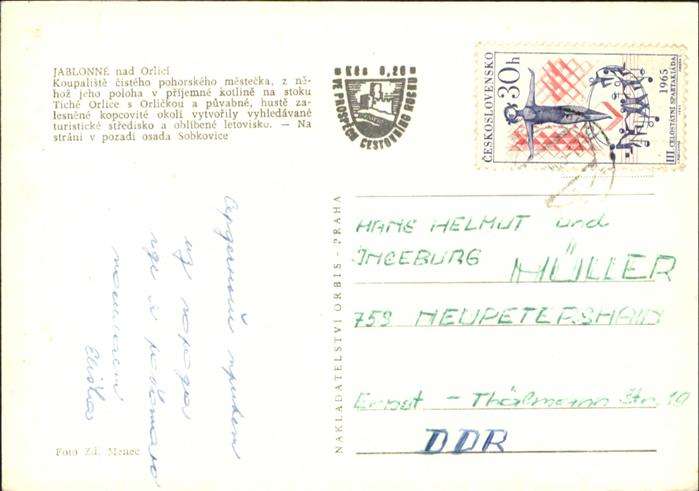 JABLONNÉ nad Orlicí
Koupaliště čistého pohorského městečka, z ně-
hož jeho poloha v příjemné kotlině na stoku
Tiché Orlice s Orličkou a půvabné, hustě za-
lesněné kopcovité okolí vytvořily vyhledávané
turistické středisko a oblíbené letovisko. — Na
stráni v pozadí osada Sobkovice
Kčs 0,20
VE PROSPĚCH CESTOVNÍHO RUCHU
ČESKOSLOVENSKO
30 h
III. CELOSTÁTNÍ SPARTAKIÁDA
1965
Сердечный привет
из города
где я работаю
посылает
Eliška
NAKLADATELSTVÍ ORBIS - PRAHA
HANS HELMUT und
INGEBURG MÜLLER
759 NEUPETERSHAIN
Ernst - Thälmann Str. 19
DDR
Foto Zd. Menec